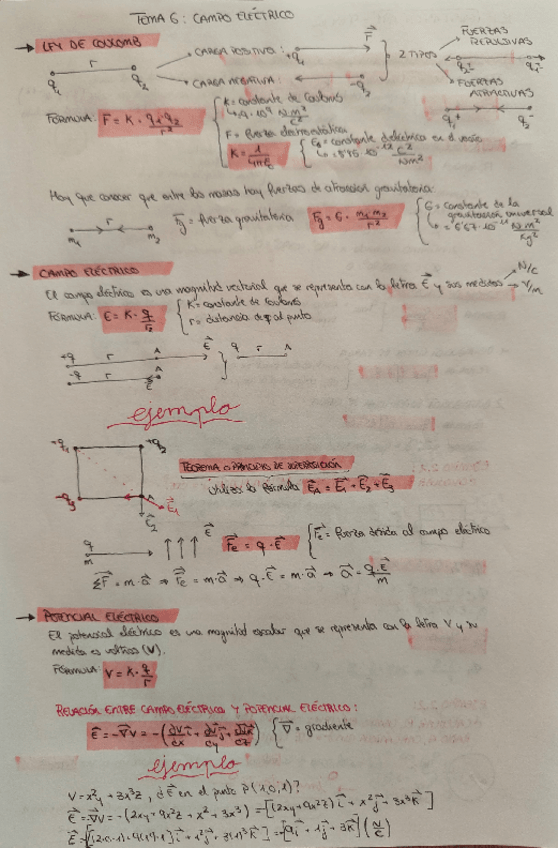 TEMA 6: CAMPO ELÉCTRICO
→ LEY DE COULOMB
r
q1 q2
CARGA POSITIVA: +q1 r F
CARGA NEGATIVA: -q2
2 TIPOS
FUERZAS REPULSIVAS
FUERZAS ATRACTIVAS
FÓRMULA: F = K · q1·q2 / r²
K = constante de Coulomb
F = fuerza electrostática
K = 1 / 4πε0
ε0 = constante dieléctrica en el vacío
Hay que conocer que entre las masas hay fuerzas de atracción gravitatoria:
m1 r m2
Fg = fuerza gravitatoria
Fg = G · m1·m2 / r²
G = constante de la gravitación universal
= 6'67·10⁻¹¹ N m² / Kg²
→ CAMPO ELÉCTRICO
El campo eléctrico es una magnitud vectorial que se representa con la letra E y sus medidas → N/C
→ V/m
FÓRMULA: E = K · q / r²
K = constante de Coulomb
r = distancia de q al punto
+q r A E
-q r A E
q r A
ejemplo
-q1 +q2
-q3 A
E1
E2
TEOREMA o PRINCIPIO DE SUPERPOSICIÓN
Utilizo la fórmula EA = E1 + E2 + E3
q
m
E
Fe = q · E
Fe = fuerza debida al campo eléctrico
ΣF = m·a ⇒ Fe = m·a ⇒ q·E = m·a ⇒ a = q·E / m
→ POTENCIAL ELÉCTRICO
El potencial eléctrico es una magnitud escalar que se representa con la letra V y su
medida es voltios (V).
FÓRMULA: V = K · q / r
RELACIÓN ENTRE CAMPO ELÉCTRICO Y POTENCIAL ELÉCTRICO:
E = -∇V = -(dV/dx i + dV/dy j + dV/dz k)
∇ = gradiente
ejemplo
V = x²y + 3x³z, ¿E en el punto P(1,0,1)?
E = -∇V = -(2xy + 9x²z + x² + 3x³) = -[(2xy + 9x²z) i + x² j + 3x³ k]
= -[9i + 1j + 3k] (N/C)